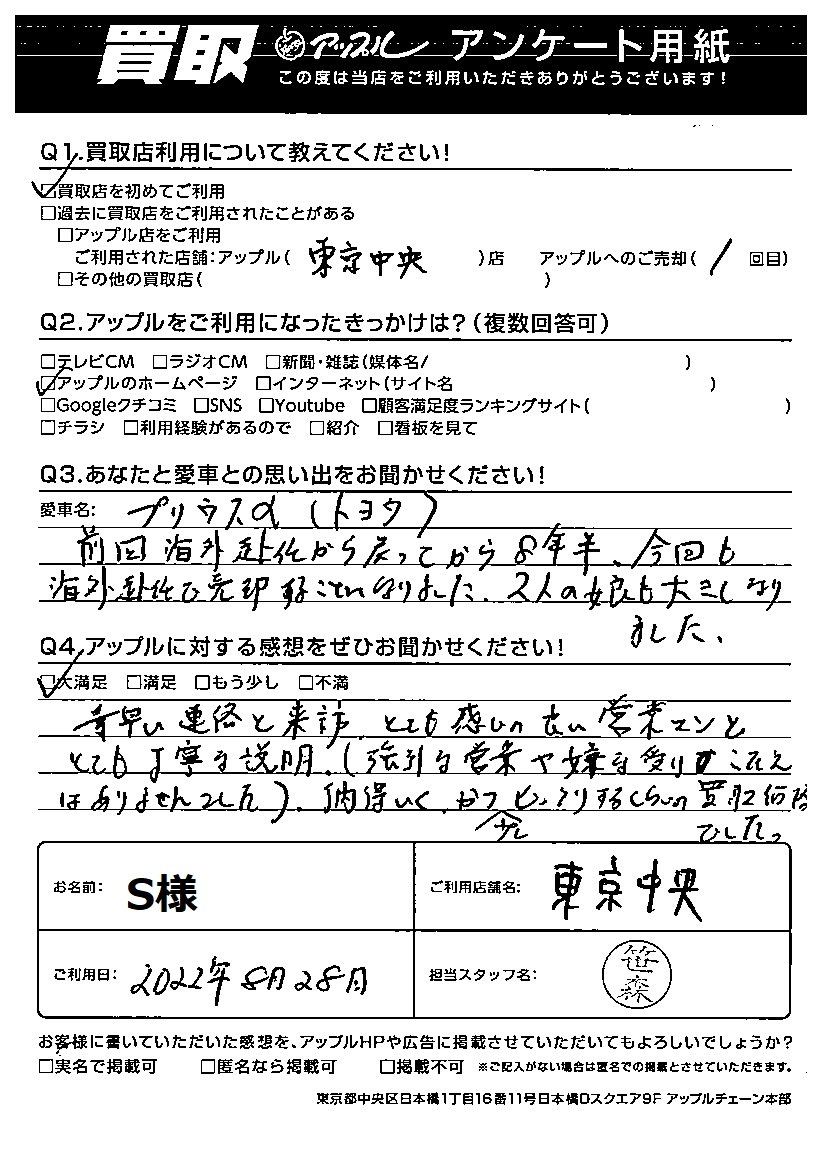 買取 アップル アンケート用紙
この度は当店をご利用いただきありがとうございます!
Q1.買取店利用について教えてください!
☑買取店を初めてご利用
□過去に買取店をご利用されたことがある
□アップル店をご利用
ご利用された店舗:アップル( 東京中央 )店 アップルへのご売却( / 回目)
□その他の買取店( )
Q2.アップルをご利用になったきっかけは?(複数回答可)
□テレビCM □ラジオCM □新聞・雑誌(媒体名/ )
☑アップルのホームページ □インターネット(サイト名 )
□Googleクチコミ □SNS □Youtube □顧客満足度ランキングサイト( )
□チラシ □利用経験があるので □紹介 □看板を見て
Q3.あなたと愛車との思い出をお聞かせください!
愛車名: プリウスα(トヨタ)
前回海外赴任から戻ってから8年半、今回も
海外赴任で売却することになりました。2人の娘も大きくなり
ました。
Q4.アップルに対する感想をぜひお聞かせください!
☑大満足 □満足 □もう少し □不満
素早い連絡と来訪、とても感じの良い営業マンと
とても丁寧な説明。(強引な営業や嫌な受けこたえ
はありませんでした)。納得いく、かつ少しビックリするくらいの買取価格
でした。
お名前: S様
ご利用店舗名: 東京中央
ご利用日: 2022年8月28日
担当スタッフ名: 笹森
お客様に書いていただいた感想を、アップルHPや広告に掲載させていただいてもよろしいでしょうか?
□実名で掲載可 □匿名なら掲載可 □掲載不可 ※ご記入がない場合は匿名での掲載とさせていただきます。
東京都中央区日本橋1丁目16番11号日本橋Dスクエア9F アップルチェーン本部